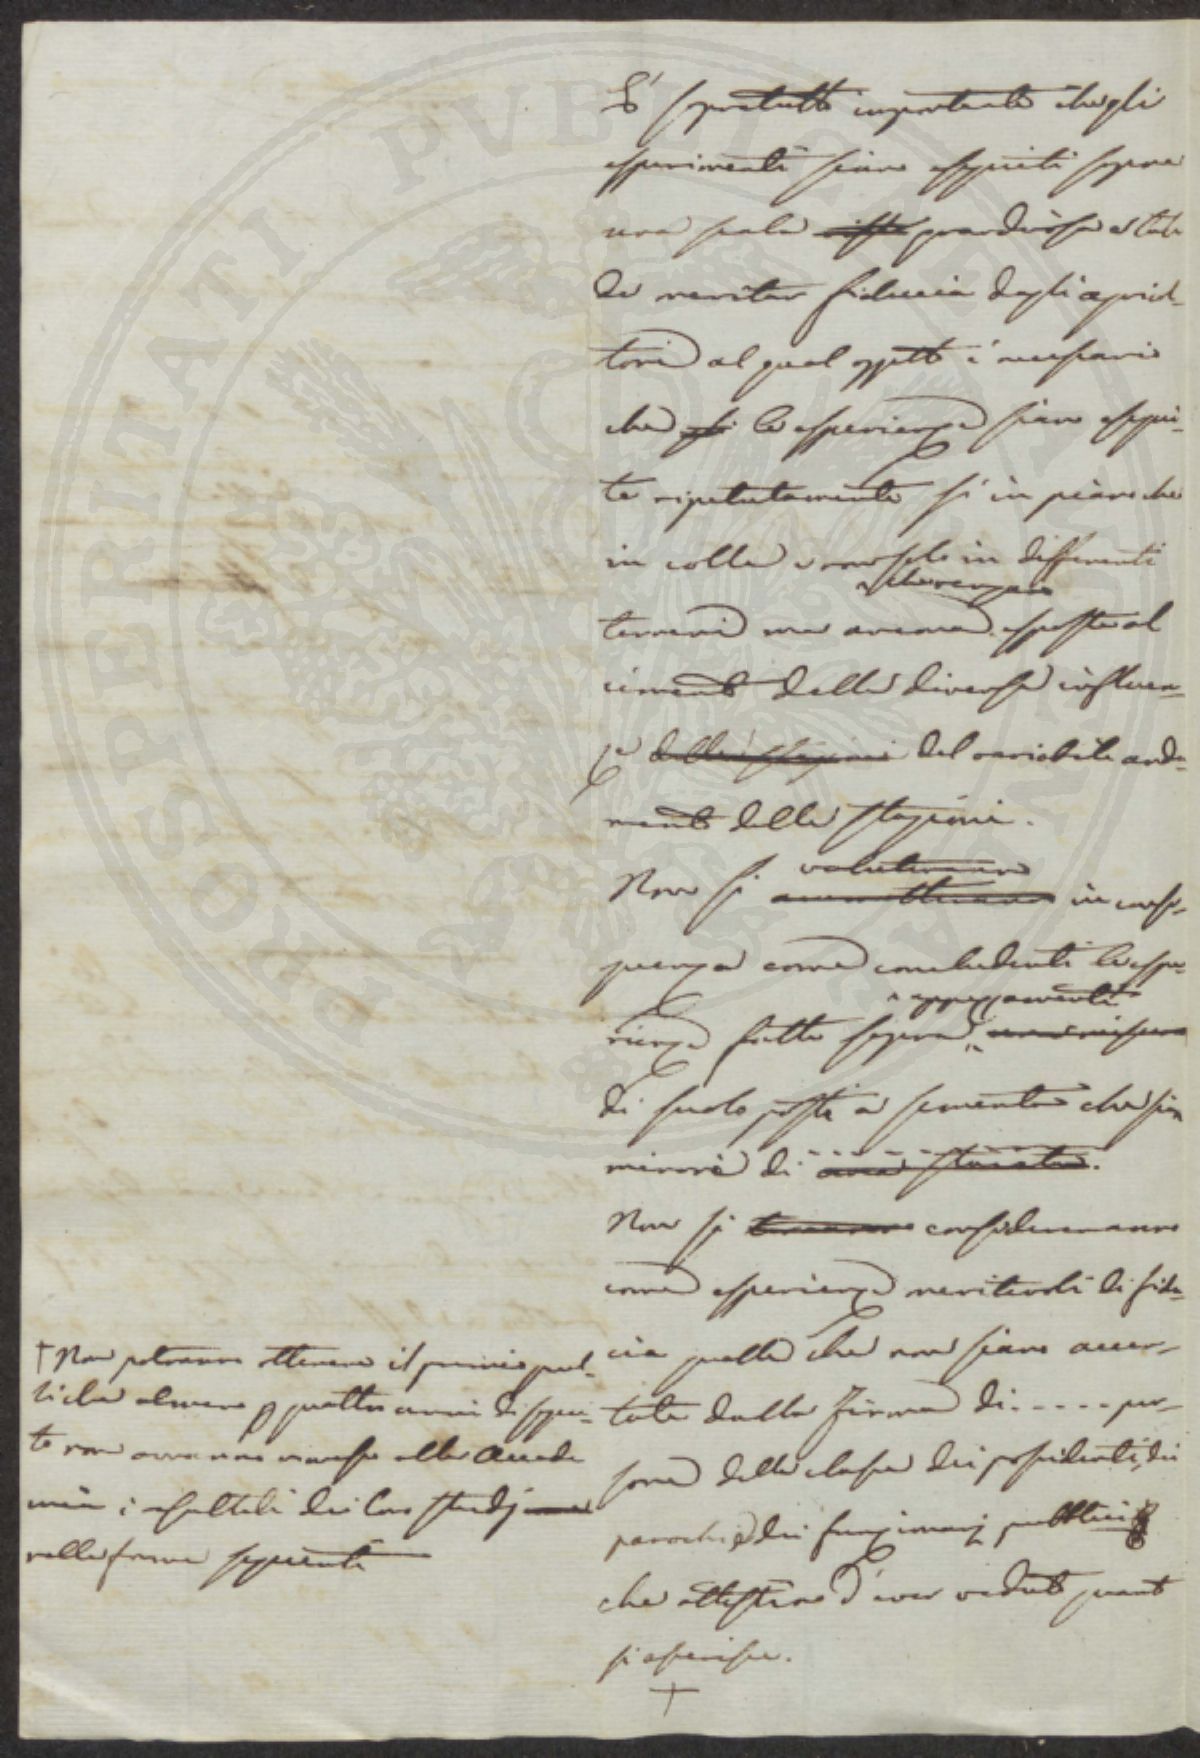 E' sopratutto importante che gli
esperimenti siano eseguiti sopra
una scala grandiosa e tale
da meritar fiducia dagli agricol-
tori al qual oggetto è necessario
che le esperienze siano esegui-
te ripetutamente sì in piano che
in colle e non solo in differenti
che vengano
terreni ma ancora esposte al
cimento delle diverse influen-
ze delle stagioni del variabile anda-
mento delle stagioni.
valuteranno
Non si ammetteranno in conse-
guenza come concludenti le espe-
appezzamenti
rienze fatte sopra una misura
di suolo poste a sementa che sia
minore di una
Non si considereranno
come esperienze meritevoli di fidu-
cia quelle che non siano accer-
tate dalla firma di . . . . . per-
sone della classe dei possidenti, dei
parochi e dei funzionarj pubblici
che attestino d'aver veduto quanto
si asserisce.
+
† Non potranno ottenere il premio quel-
li che almeno p quattro anni di segui-
to non avranno rimesso alla Accade
mia i resultati dei loro studj
nella forma seguente
PROSPERITATI PVBLICAE AVGENDAE